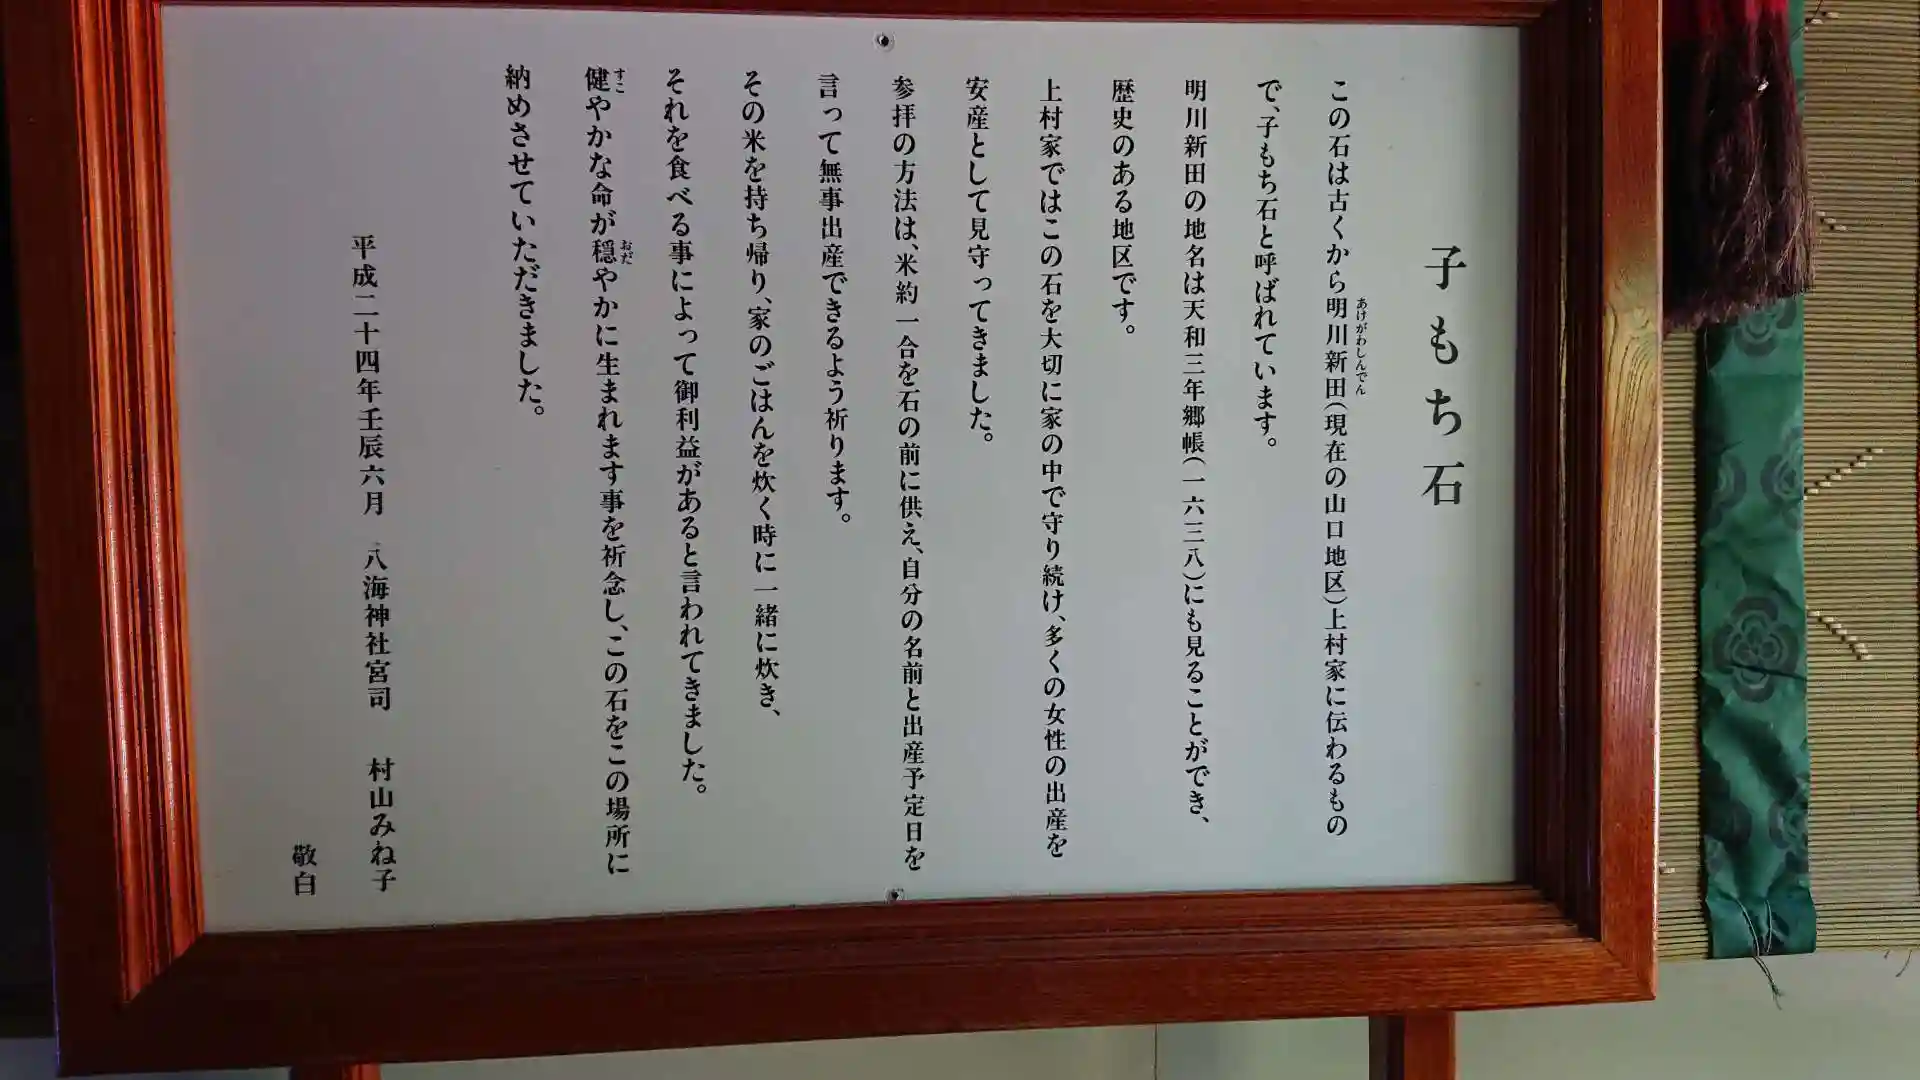 子もち石
この石は古くから明川新田（現在の山口地区）上村家に伝わるもの
あけがわしんでん
で、子もち石と呼ばれています。
明川新田の地名は天和三年郷帳（一六三八）にも見ることができ、
歴史のある地区です。
上村家ではこの石を大切に家の中で守り続け、多くの女性の出産を
安産として見守ってきました。
参拝の方法は、米約一合を石の前に供え、自分の名前と出産予定日を
言って無事出産できるよう祈ります。
その米を持ち帰り、家のごはんを炊く時に一緒に炊き、
それを食べる事によって御利益があると言われてきました。
健やかな命が穏やかに生まれます事を祈念し、この石をこの場所に
すこ
おだ
納めさせていただきました。
平成二十四年壬辰六月 八海神社宮司 村山みね子
敬白